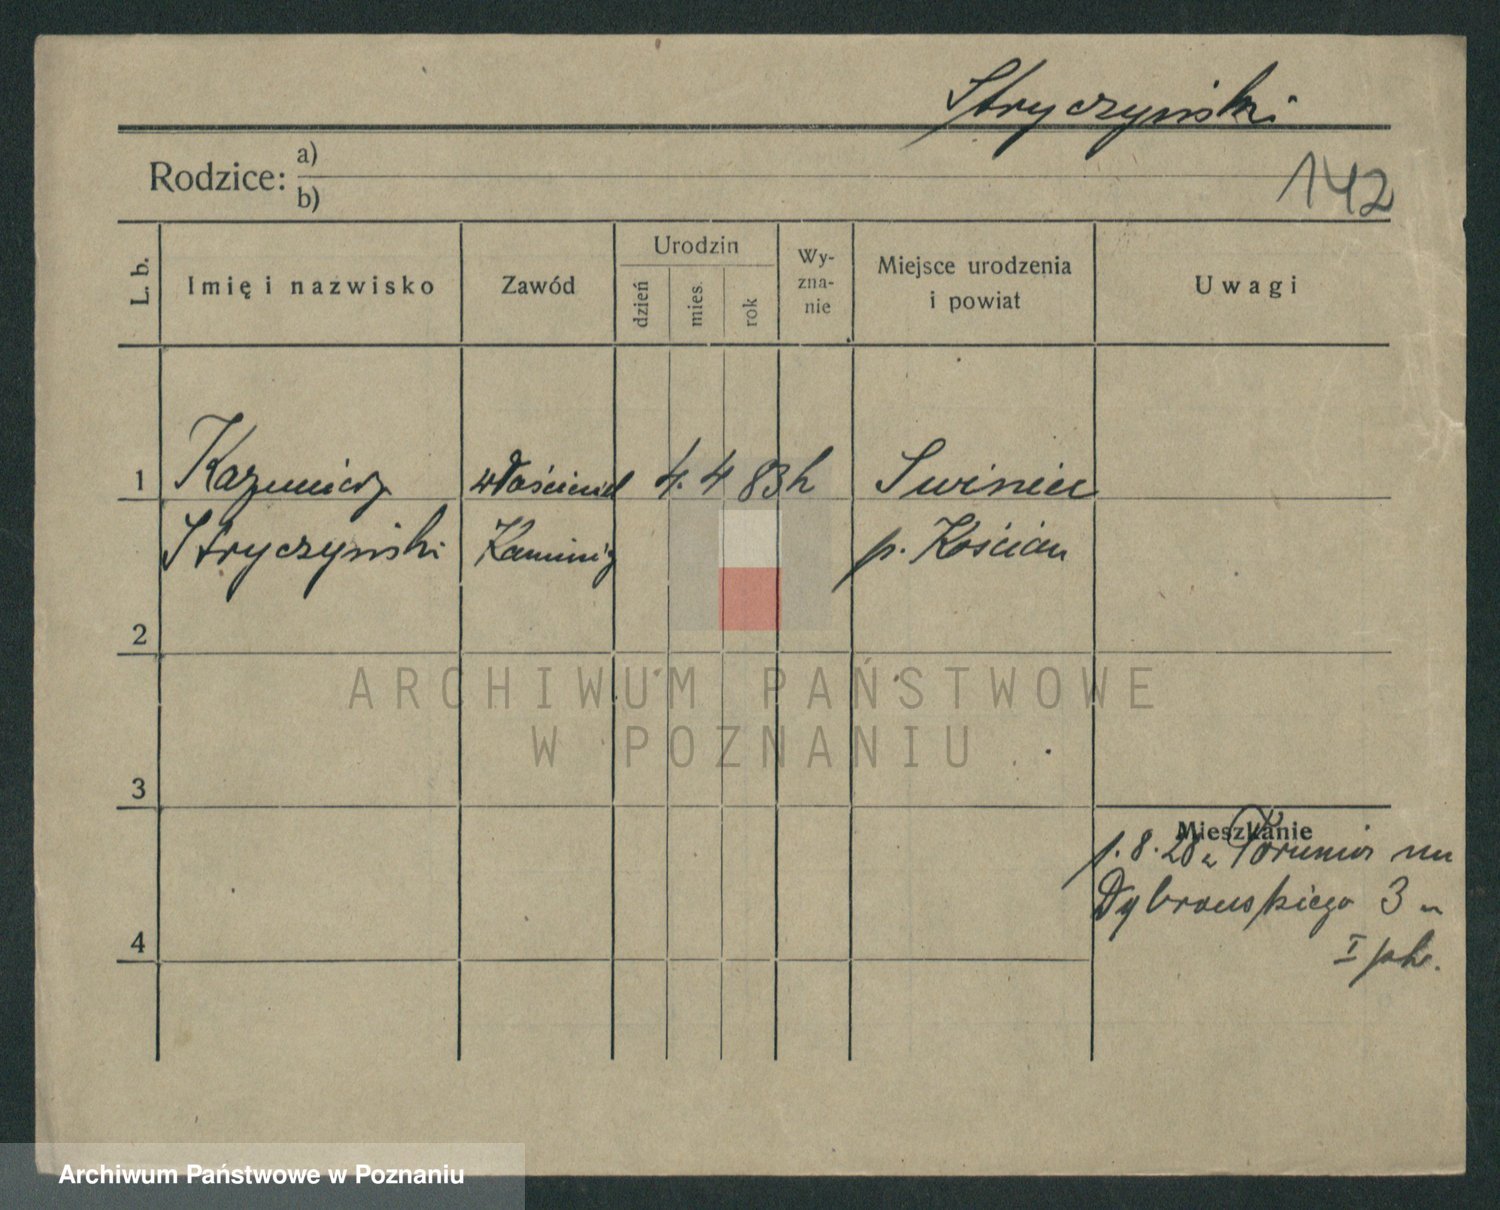 Stryczyński
Rodzice: a)
b)
142
L. b.
Imię i nazwisko
Zawód
Urodzin
dzień
mies.
rok
Wy-
zna-
nie
Miejsce urodzenia
i powiat
Uwagi
1
Kazimierz
właściciel
4. 4 83 k
Stryczyński
p. Kościan
2
3
4
Mieszkanie
1. 8. 28
3
I
ARCHIWUM PAŃSTWOWE
W POZNANIU
Archiwum Państwowe w Poznaniu